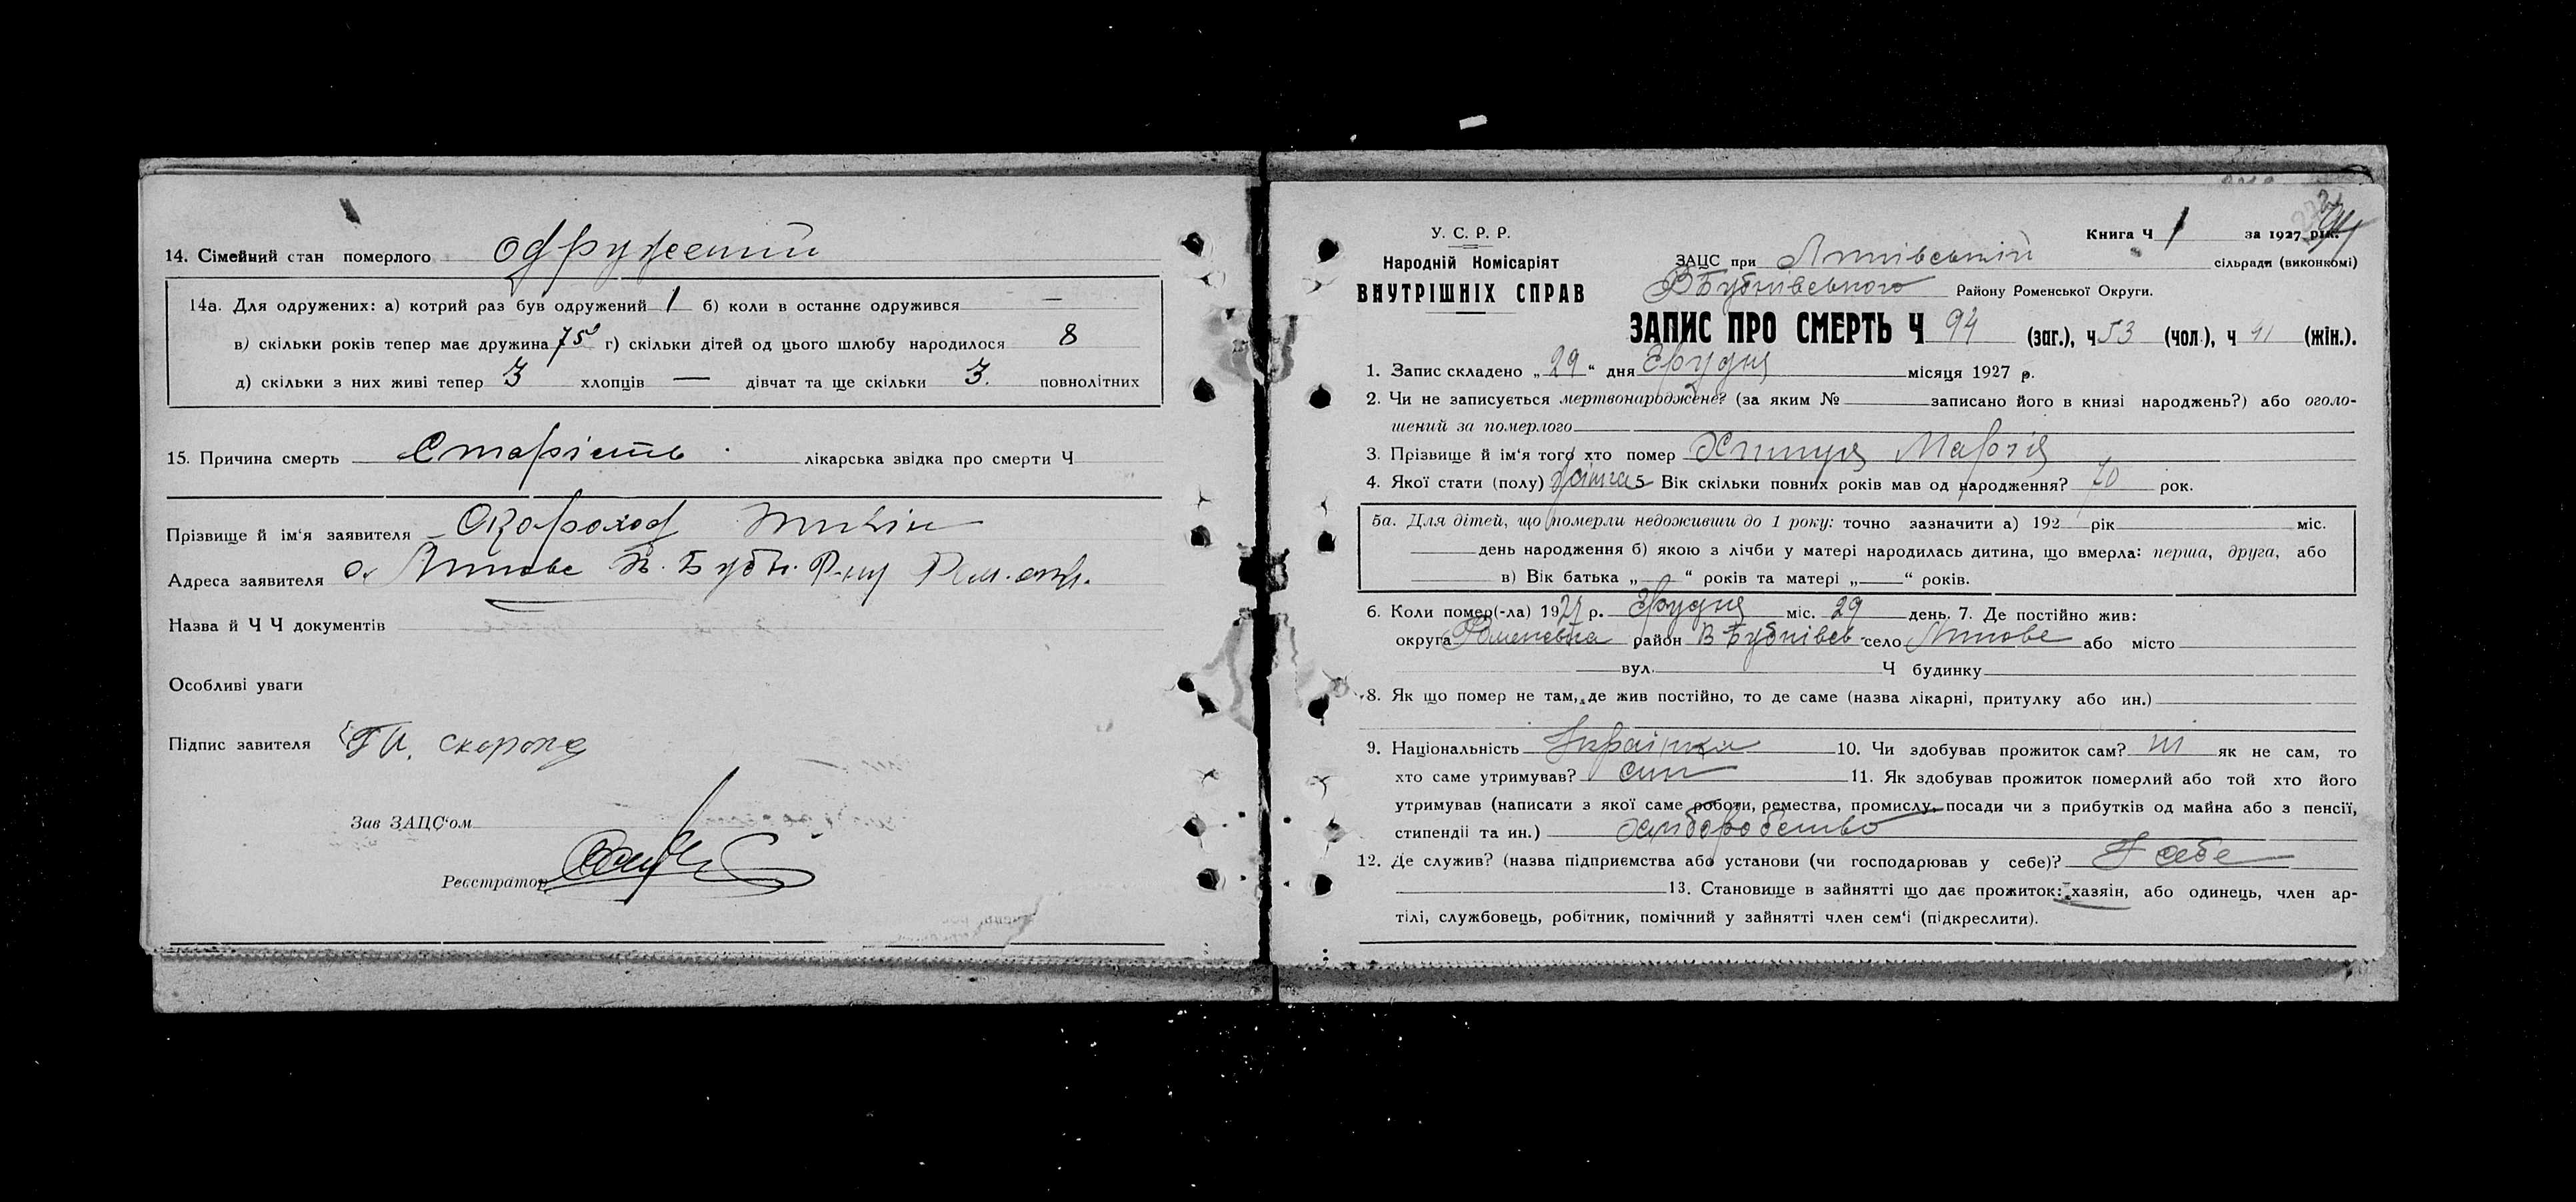 14. Сімейний стан померлого одружений
14а. Для одружених: а) котрий раз був одружений 1 б) коли в останнє одружився —
в) скільки років тепер має дружина 75 г) скільки дітей од цього шлюбу народилося 8
д) скільки з них живі тепер 3 хлопців — дівчат та ще скільки 3. повнолітних
15. Причина смерть Старість лікарська звідка про смерти Ч
Прізвище й ім‘я заявителя Скороход
Адреса заявителя с. Липове В. Бубн. Р-ну Ром. окр.
Назва й Ч Ч документів
Особливі уваги
Підпис завителя скороход
Зав ЗАЦС‘ом
Реєстратор
У. С. Р. Р.
Народній Комісаріят
ВНУТРІШНІХ СПРАВ
Книга Ч 1 за 1927 рік.
ЗАЦС при Липівській сільради (виконкомі)
В Бубнівського Району Роменської Округи.
ЗАПИС ПРО СМЕРТЬ Ч 94 (заг.), ч 53 (чол.), ч 41 (жін.).
1. Запис складено „29“ дня Грудня місяця 1927 р.
2. Чи не записується мертвонароджене? (за яким № записано його в книзі народжень?) або оголо-
шений за померлого
3. Прізвище й ім‘я того хто помер Марія
4. Якої стати (полу) жіноча 5 Вік скільки повних років мав од народження? 70 рок.
5а. Для дітей, що померли недоживши до 1 року: точно зазначити а) 192 рік міс.
день народження б) якою з лічби у матері народилась дитина, що вмерла: перша, друга, або
в) Вік батька „ “ років та матері „ “ років.
6. Коли помер(-ла) 1927 р. Грудня міс. 29 день. 7. Де постійно жив:
округа Роменська район В Бубнівсь село Липове або місто
вул. Ч будинку
8. Як що помер не там, де жив постійно, то де саме (назва лікарні, притулку або ин.)
9. Національність Українка 10. Чи здобував прожиток сам? ні як не сам, то
хто саме утримував? син 11. Як здобував прожиток померлий або той хто його
утримував (написати з якої саме роботи, ремества, промислу, посади чи з прибутків од майна або з пенсії,
стипендії та ин.) хліборобство
12. Де служив? (назва підприємства або установи (чи господарював у себе)? У себе
13. Становище в зайнятті що дає прожиток: хазяін, або одинець, член ар-
тілі, службовець, робітник, помічний у зайнятті член сем‘ї (підкреслити).